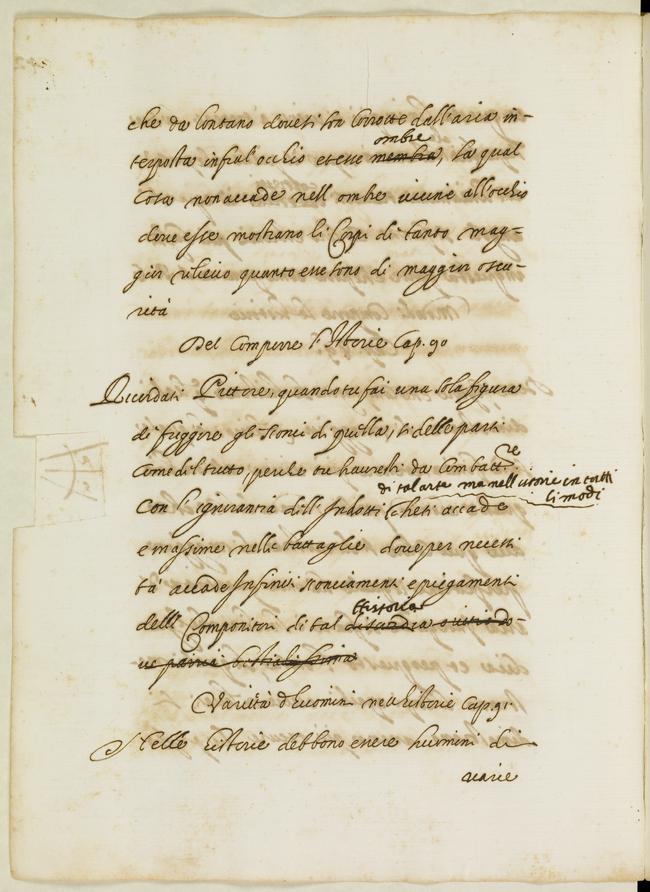 che da lontano dove ti son corrotte dall'aria in-
terposta infra l'occhio et esse membra, la qual
ombre
Cosa non accade nell ombre vicine all'occhio
dove esse mostrano li Corpi di tanto mag-
gior rilievo quanto esse sono di maggior oscu-
rità
Del Comporre l'Istorie Cap. 90
Ricordati Pittore, quando tu fai una sola figura
di fuggire gli scorci di quella, sì delle parti
Come del tutto, perche tu haueresti da Combattre
di tal arte ma nell istorie in tutti
li modi
Con l'ignorantia delli Indotti che ti accade
e massime nelle battaglie doue per necessi
tà accade Infiniti sconciamenti e piegamenti
delli Componitori di tal discordia
Historia
bestialissima
Varietà d'huomini nell'historie Cap. 91
Nelle historie debbono essere huomini di
varie